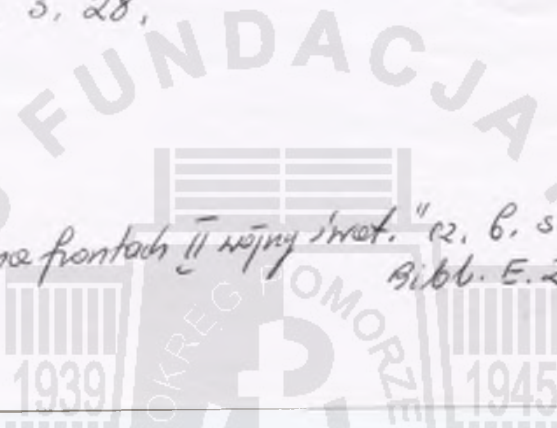 s. 28.
FUNDACJA
na frontach II wojny świat." cz. 6. s
Bibl. E. Z
OKRĘG POMORZE
1939
1945